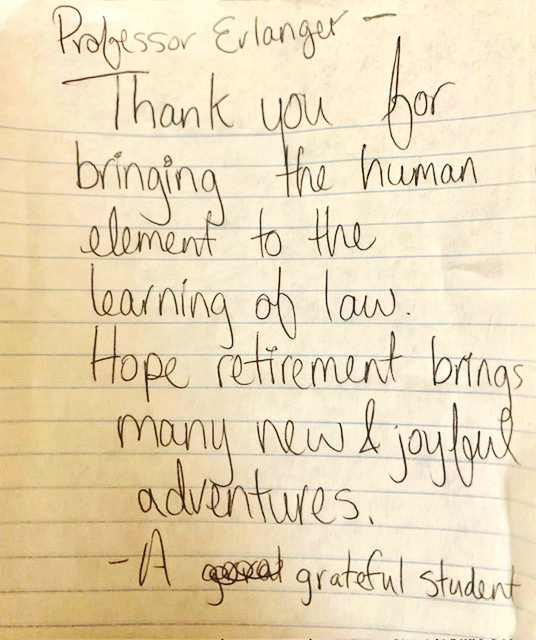 Professor Erlanger -
Thank you for
bringing the human
element to the
learning of law.
Hope retirement brings
many new & joyful
adventures.
- A grateful student